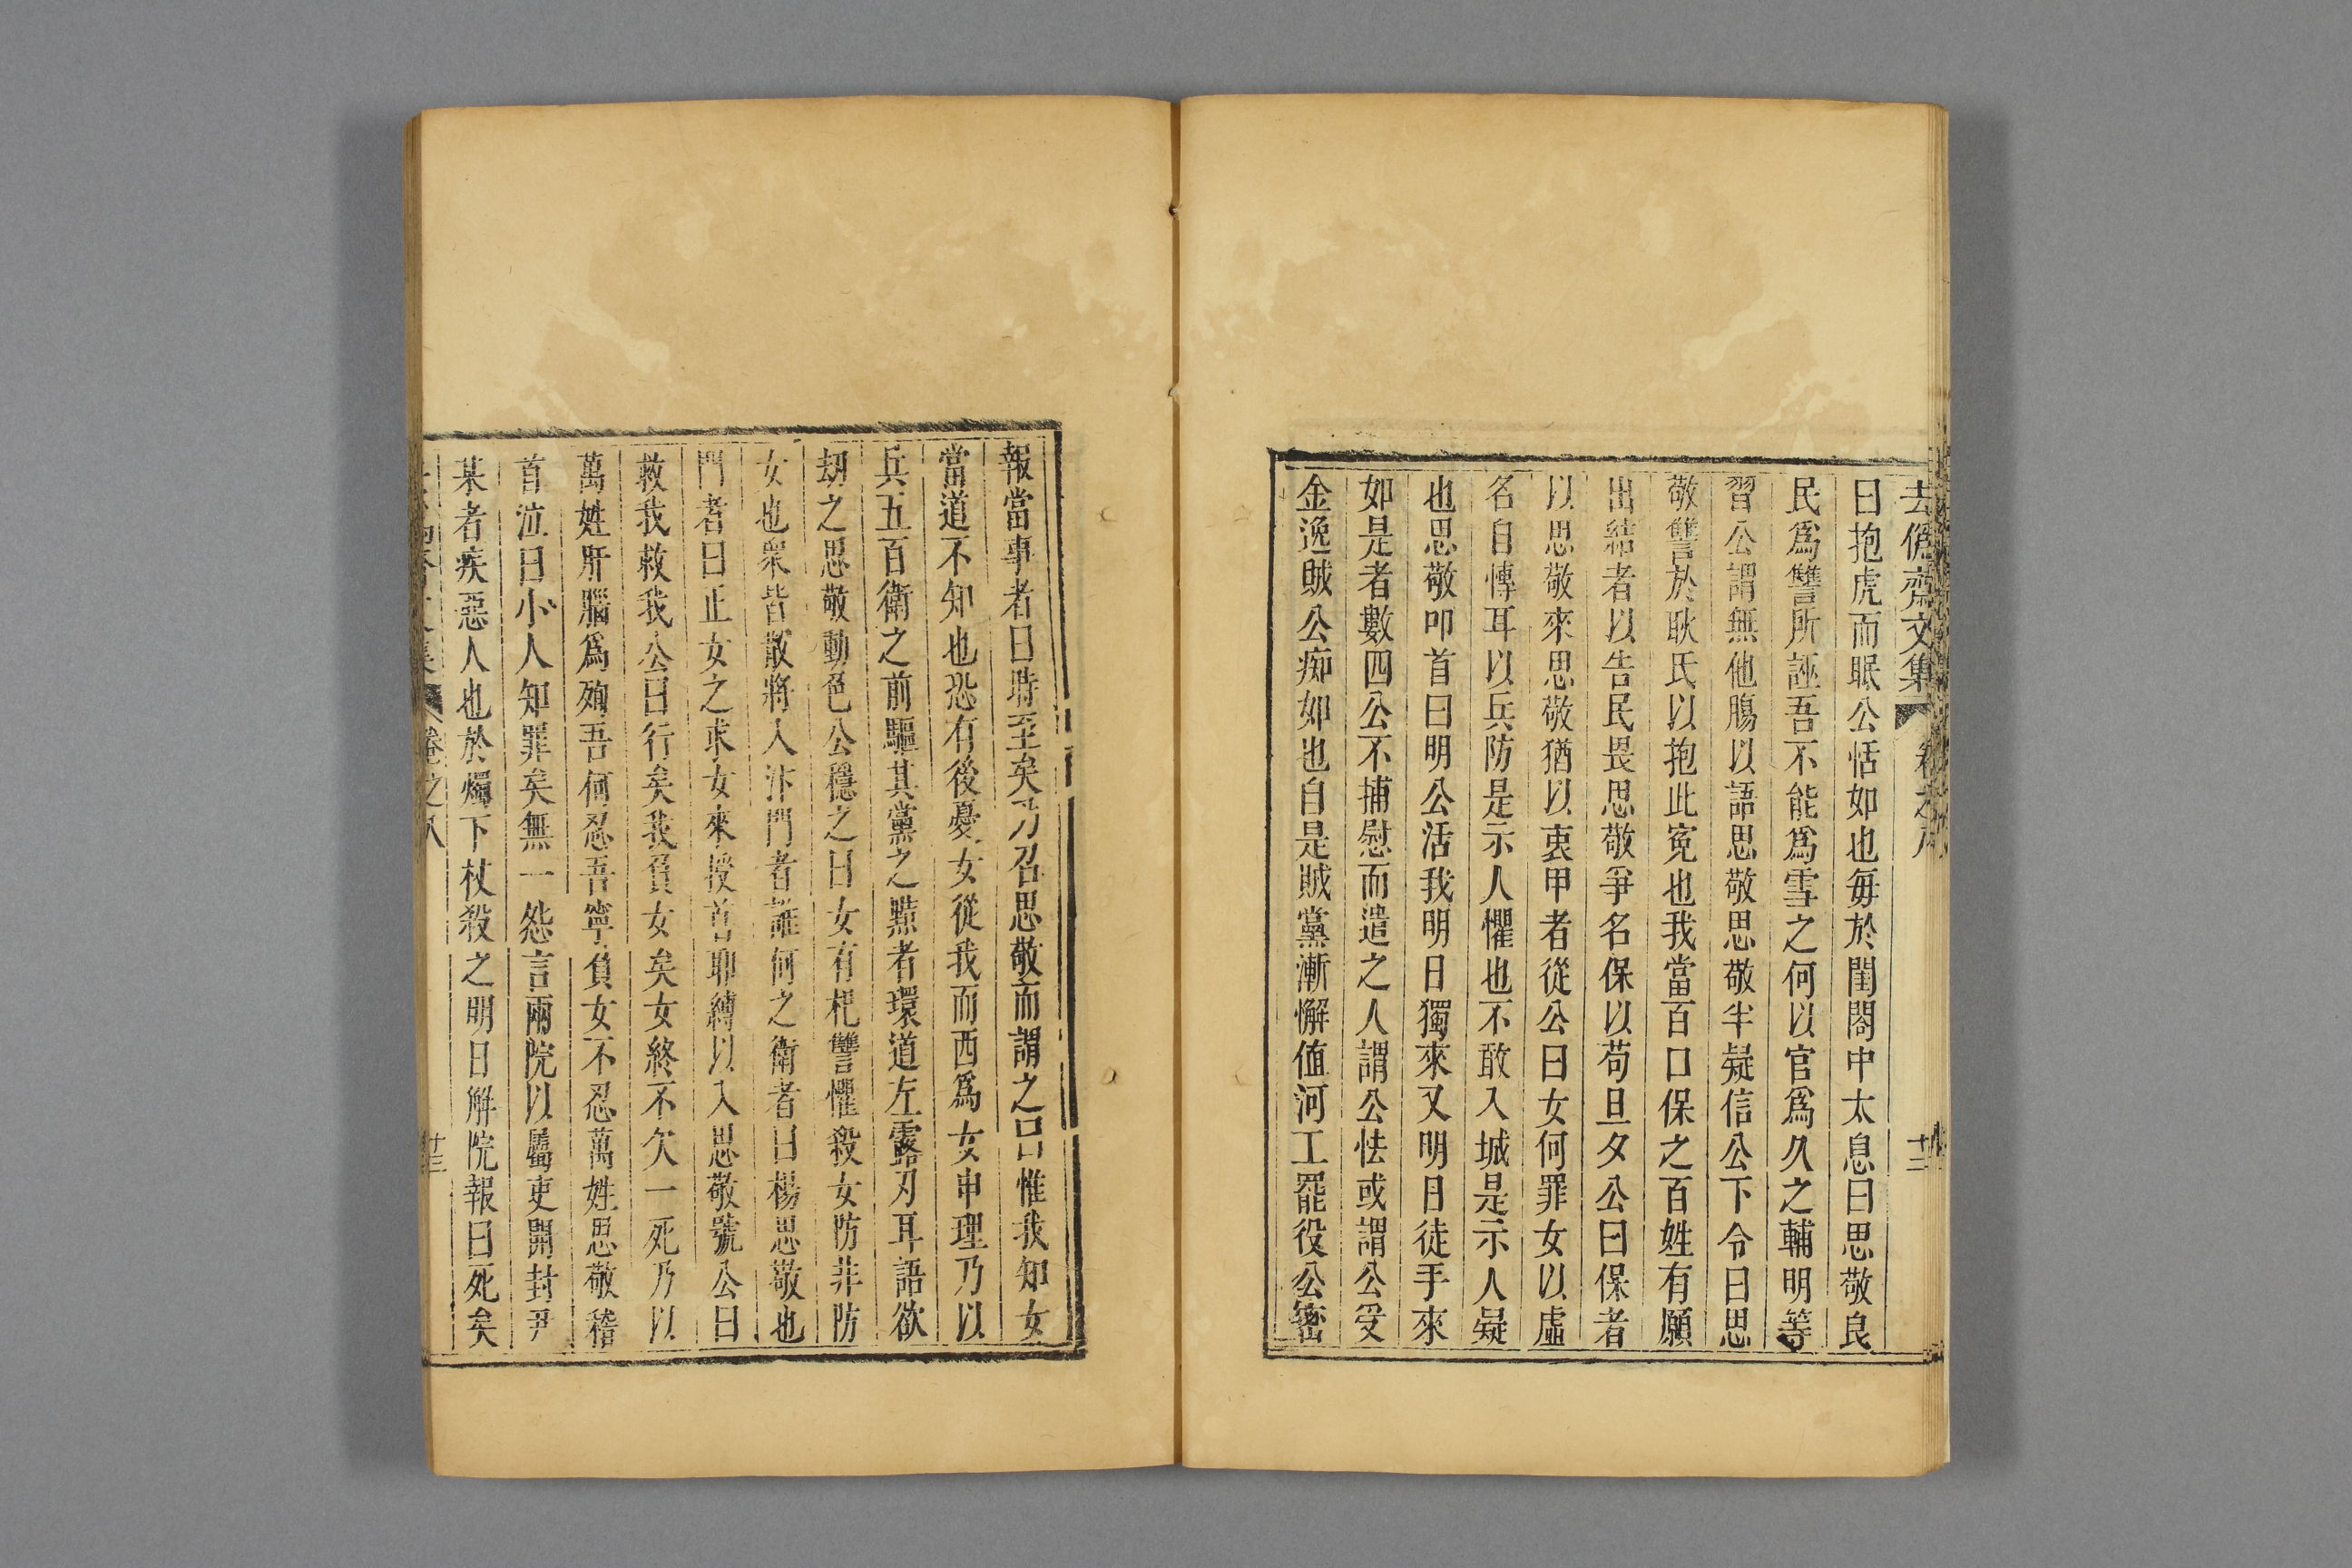 去偽齋文集 卷之八 十二
曰抱虎而眠公恬如也每於閨閤中太息曰思敬良
民爲讐所誣吾不能爲雪之何以官爲久之輔明等
習公謂無他腸以語思敬思敬半疑信公下令曰思
敬讐於耿氏以抱此寃也我當百口保之百姓有願
出結者以告民畏思敬爭名保以苟旦夕公曰保者
以思敬來思敬猶以衷甲者從公曰女何罪女以虛
名自慱耳以兵防是示人懼也不敢入城是示人疑
也思敬叩首曰明公活我明日獨來又明日徒手來
如是者數四公不捕慰而遣之人謂公怯或謂公受
金逸賊公痴如也自是賊黨漸懈值河工罷役公密
報當事者曰時至矣乃召思敬而謂之曰惟我知女
當道不知也恐有後憂女從我而西爲女申理乃以
兵五百衛之前驅其黨之黠者環道左露刃耳語欲
刼之思敬動色公穩之曰女有杞讐懼殺女防非防
女也衆皆散將入汴門者誰何之衛者曰楊思敬也
門者曰止女之求女來授首耶縛以入思敬號公曰
救我救我公曰行矣我負女矣女終不欠一死乃以
萬姓肝腦爲殉吾何忍吾寧負女不忍萬姓思敬稽
首泣曰小人知罪矣無一怨言兩院以屬吏開封尹
某者疾惡人也於燭下杖殺之明日解院報曰死矣
文集 卷之八 十三